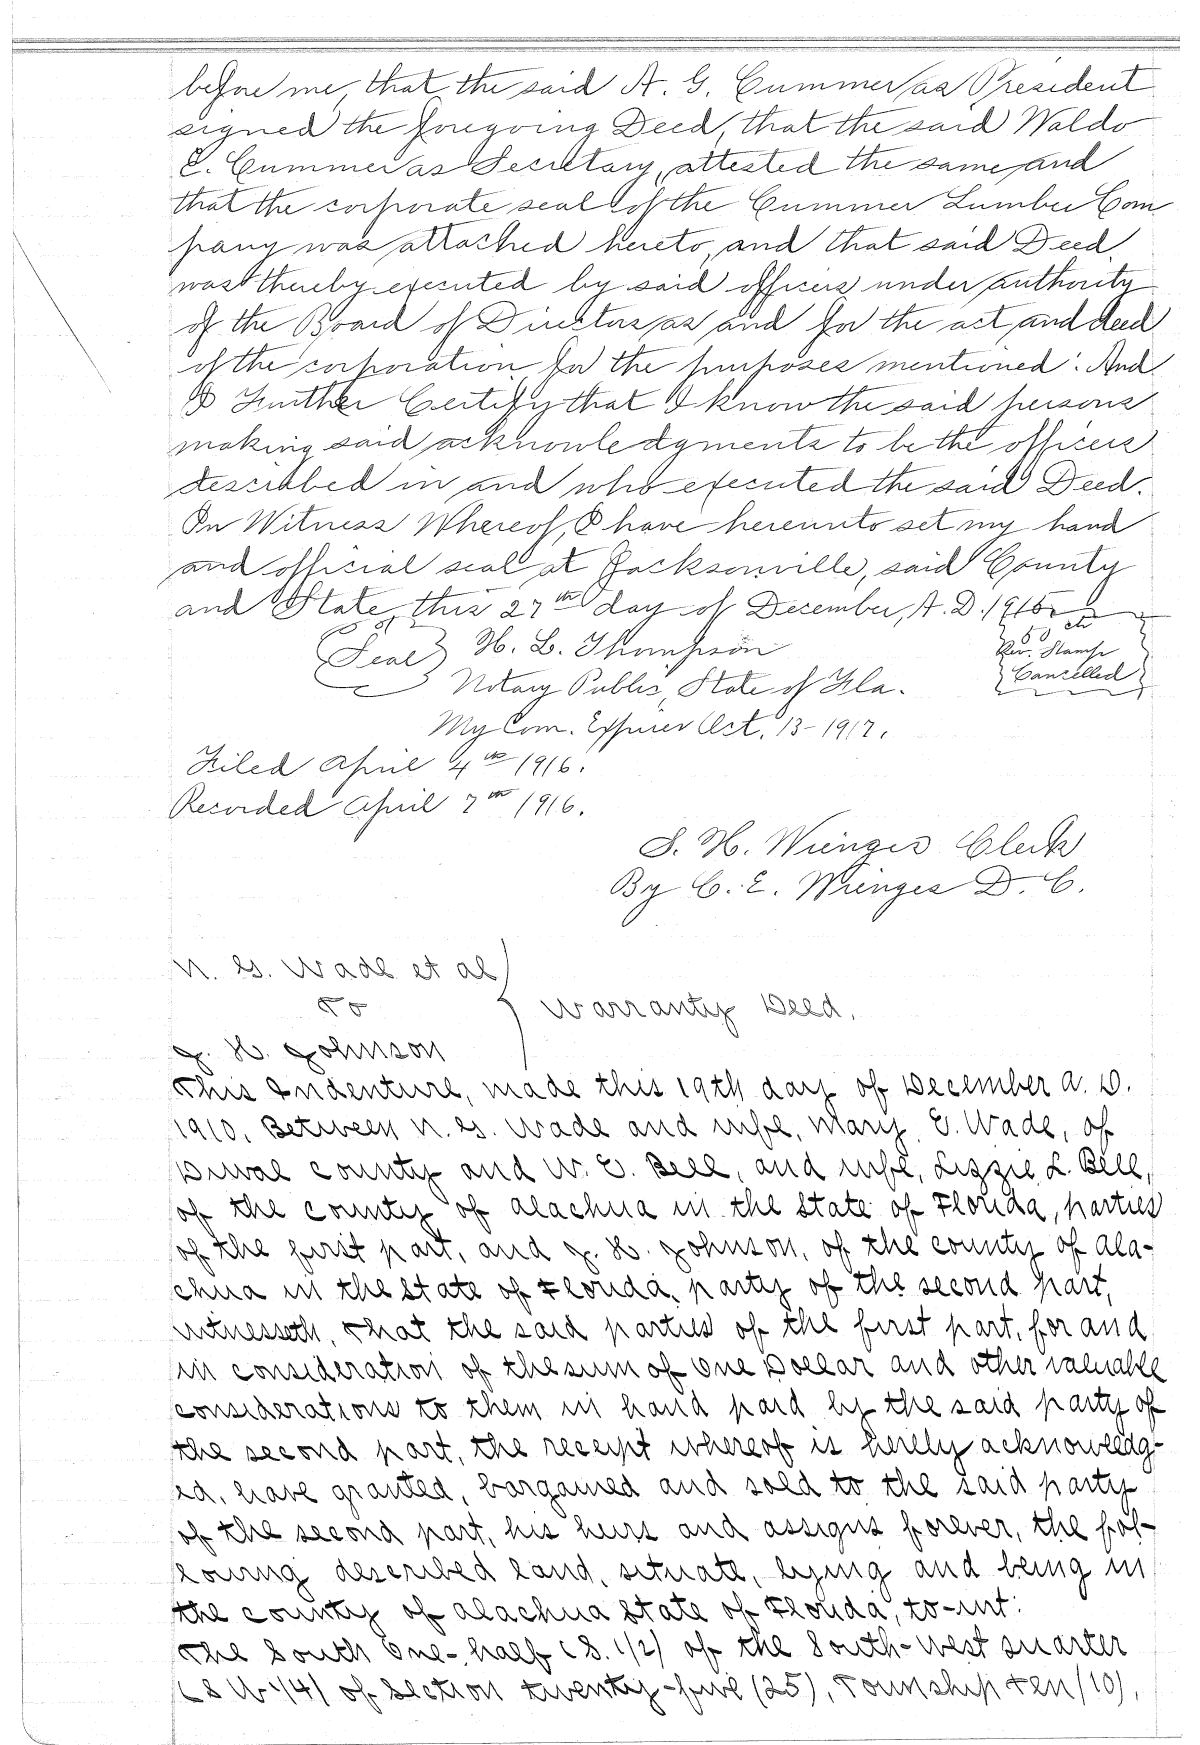 before me, that the said A. G. Cummer as President
signed the foregoing Deed, that the said Waldo
E. Cummer as Secretary, attested the same and
that the corporate seal of the Cummer Lumber Com
pany was attached hereto, and that said Deed
was thereby executed by said officers under authority
of the Board of Directors as and for the act and deed
of the corporation for the purposes mentioned: And
I Further Certify that I know the said persons
making said acknowledgments to be the officers
described in and who executed the said Deed.
In Witness Whereof, I have hereunto set my hand
and official seal at Jacksonville, said County
and State, this 27th day of December, A. D. 1915.
Seal
H. L. Thompson
50 cts
Rev. Stamps
Cancelled
Notary Public, State of Fla.
My Com. Expires Oct. 13-1917.
Filed April 4th 1916.
Recorded April 7th 1916.
S. H. Wienges Clerk
By C. E. Wienges D. C.
N. G. Wade et al
To
Warranty Deed.
J. H. Johnson
This Indenture, made this 19th day of December A. D.
1910, Between N. G. Wade and wife, Mary E. Wade, of
Duval County and W. E. Bell, and wife, Lizzie L. Bell,
of the county of Alachua in the State of Florida, parties
of the first part, and J. H. Johnson, of the county of Ala-
chua in the State of Florida, party of the second part,
witnesseth, that the said parties of the first part, for and
in consideration of the sum of One Dollar and other valuable
considerations to them in hand paid by the said party of
the second part, the receipt whereof is hereby acknowledg-
ed, have granted, bargained and sold to the said party
of the second part, his heirs and assigns forever, the fol-
lowing described land, situate, lying and being in
the county of Alachua State of Florida, to-wit:
The South One-half (S. 1/2) of the South-west quarter
(S W 1/4) of Section twenty-five (25), Township Ten (10),